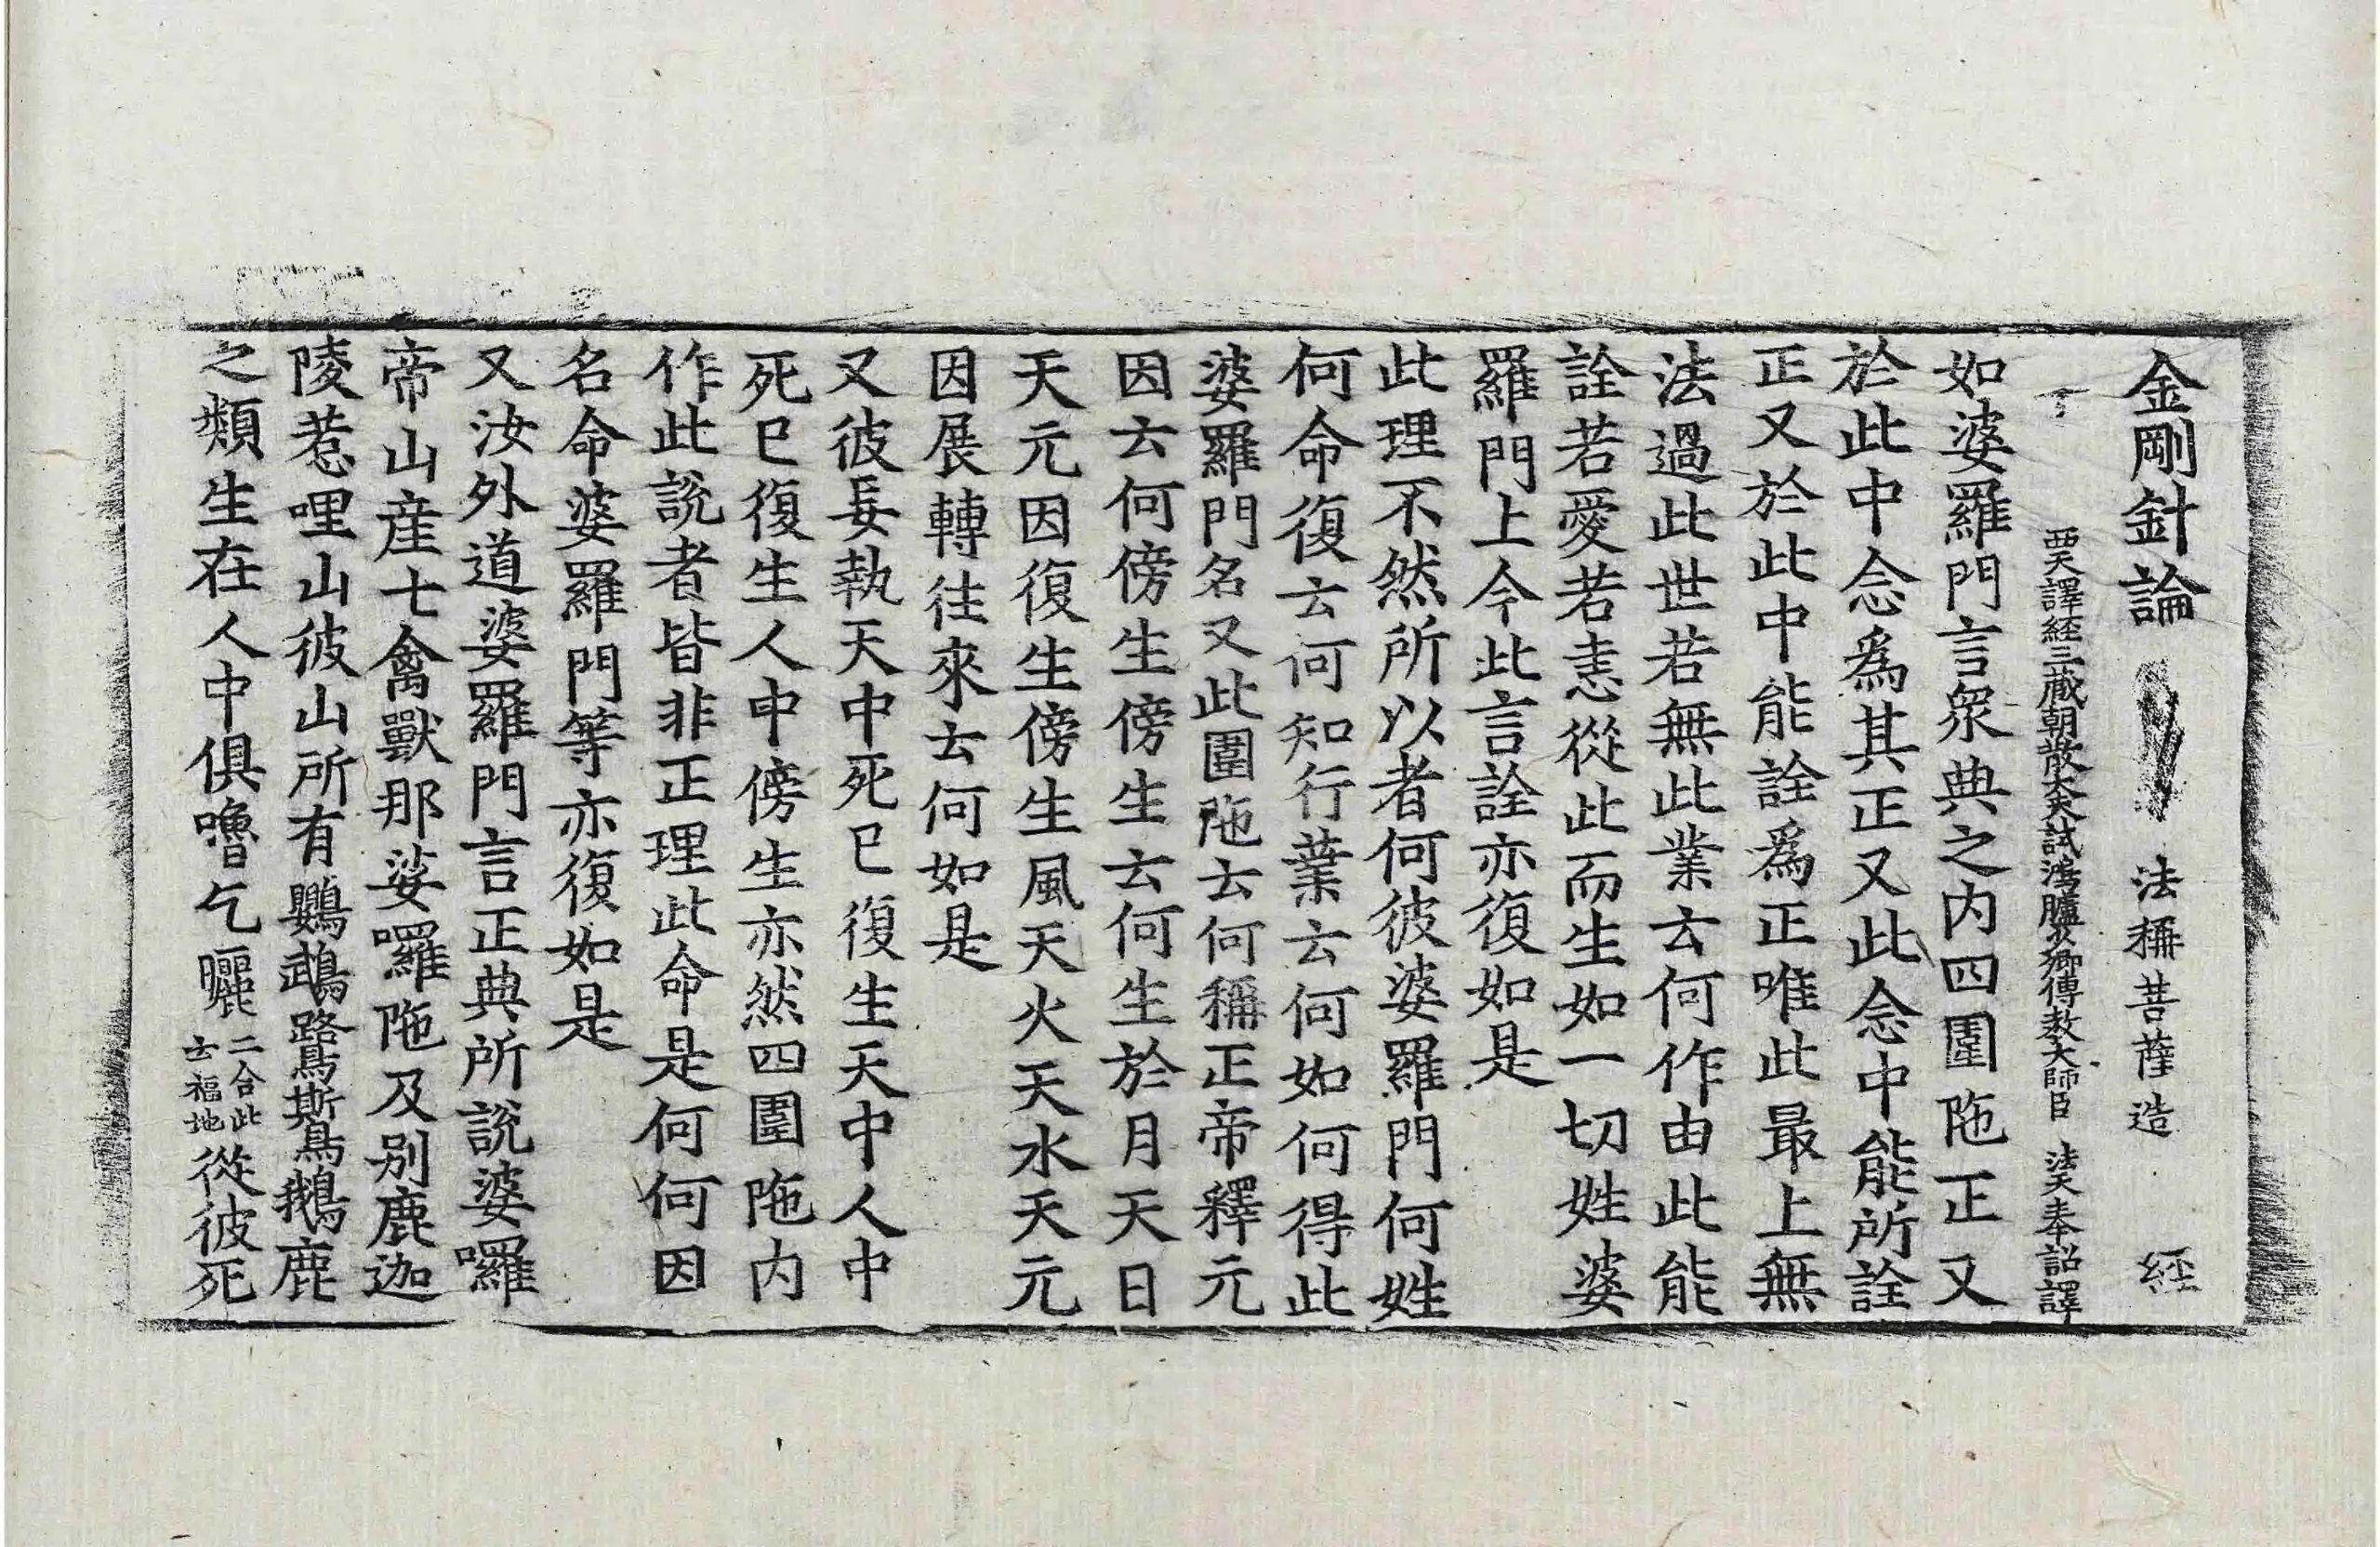 金剛針論 法稱菩薩造 經
西天譯經三藏朝散大夫試鴻臚少卿傳敎大師臣法天奉詔譯
如婆羅門言衆典之内四圍陁正又
於此中念爲其正又此念中能所詮
正又於此中能詮爲正唯此最上無
法過此世若無此業去何作由此能
詮若愛若恚從此而生如一切姓婆
羅門上今此言詮亦復如是
此理不然所以者何彼婆羅門何姓
何命復去何知行業去何如何得此
婆羅門名又此圍陁去何稱正帝釋元
因去何傍生傍生去何生於月天日
天元因復生傍生風天火天水天元
因展轉往來去何如是
又彼妄執天中死巳復生天中人中
死巳復生人中傍生亦然四圍陁内
作此說者皆非正理此命是何何因
名命婆羅門等亦復如是
又汝外道婆羅門言正典所說婆囉
帝山産七禽獸那娑囉陁及别鹿迦
陵惹哩山彼山所有鸚鵡鷺鷥鵝鹿
之類生在人中俱嚕乞㘑二合此云福地從彼死